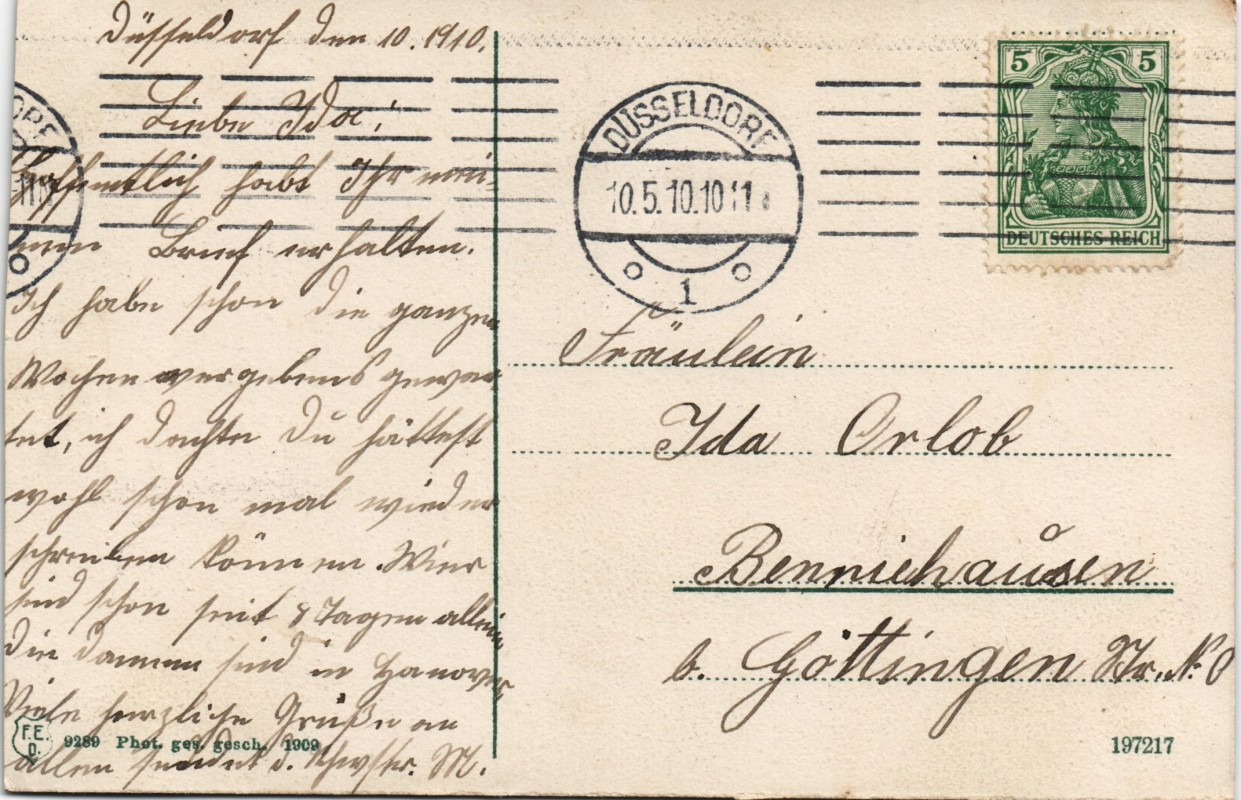 Düsseldorf den 10. 1910.
Liebe Ida!
Hoffentlich habt Ihr mei-
nen Brief erhalten.
Ich habe schon die ganzen
Wochen vergebens gewar
tet, ich dachte Du hättest
wohl schon mal wieder
schreiben können. Wier
sind schon seit 8 Tagen allein
die Damen sind in Hanover
Viele herzliche Grüße an
allen sendet d. Schwstr. M.
F.E.D.
9289 Phot. ges. gesch. 1909
DÜSSELDORF
10.5.10.10-11
1
5 5
DEUTSCHES REICH
Fräulein
Ida Orlob
Benniehausen
b. Göttingen Str. N. 6
197217